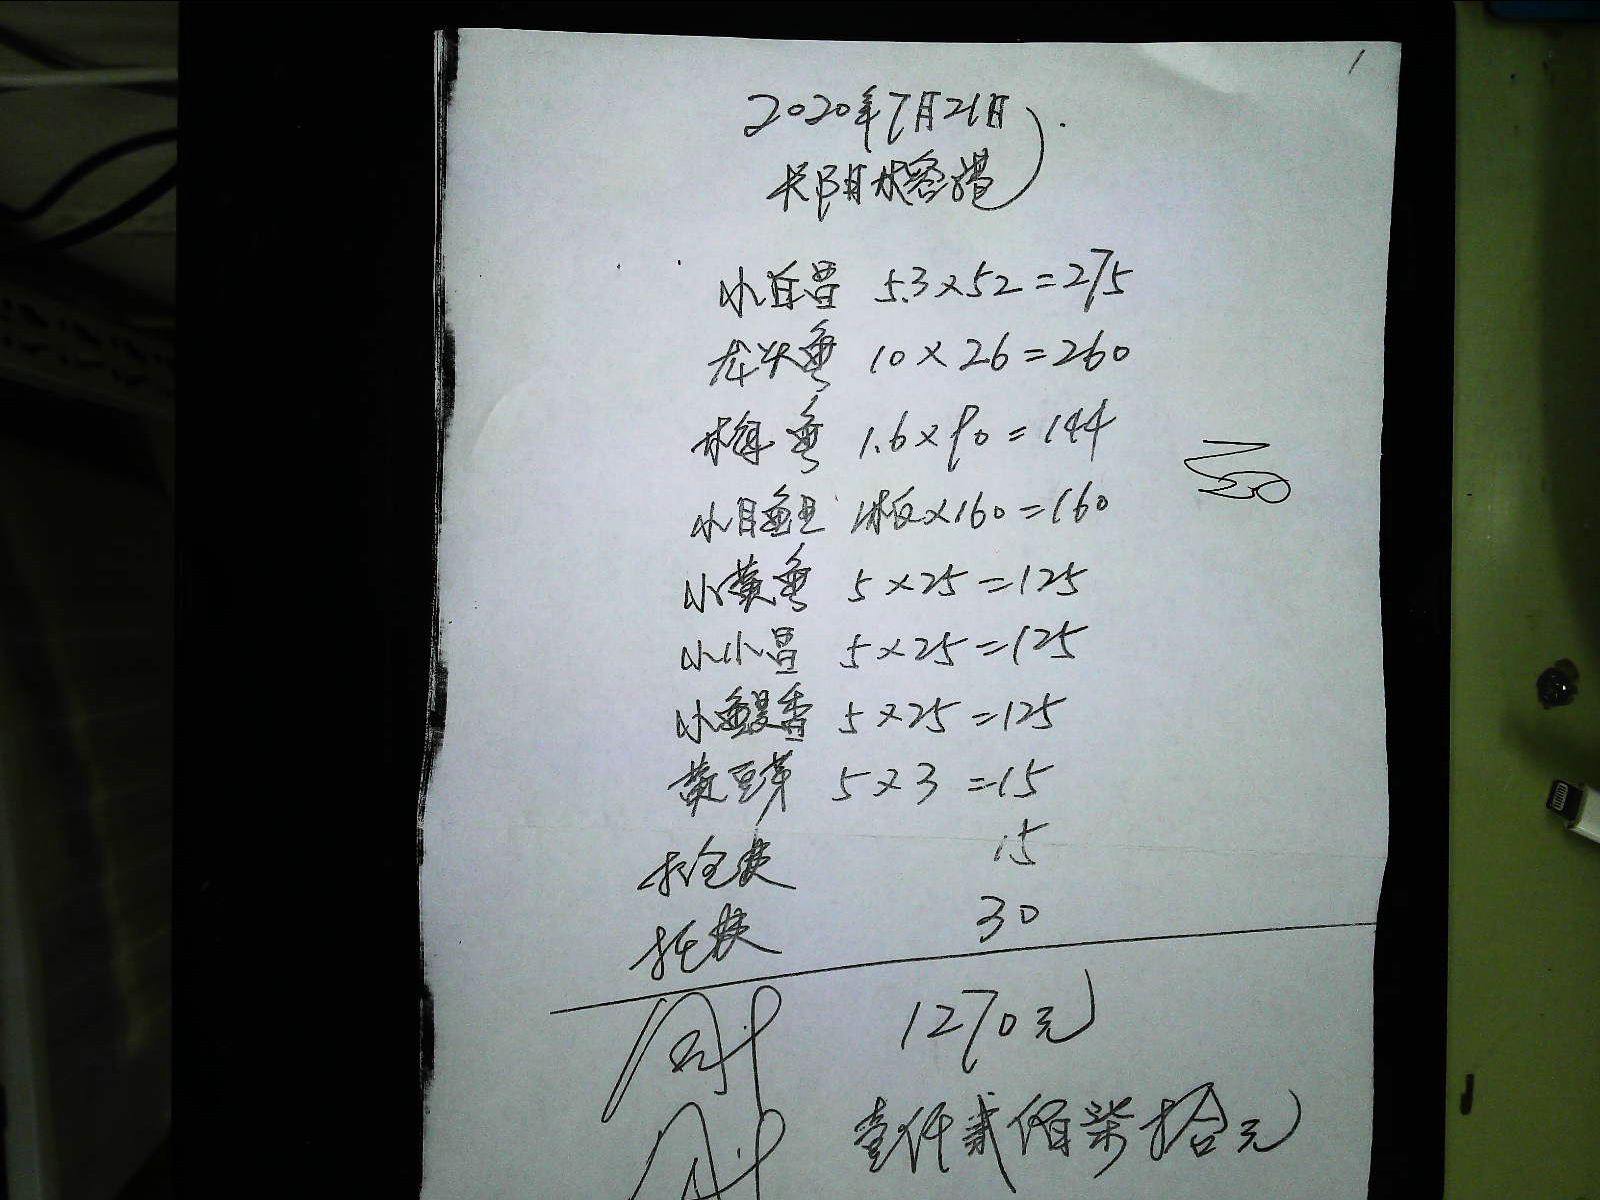 1
2020年7月21日
小白昌 5.3×52=275
龙头鱼 10×26=260
梅鱼 1.6×90=144
小目鱼旦 1板×160=160
小黄鱼 5×25=125
小小昌 5×25=125
小鳗香 5×25=125
黄豆芽 5×3=15
15
30
1270元
壹仟贰佰柒拾元